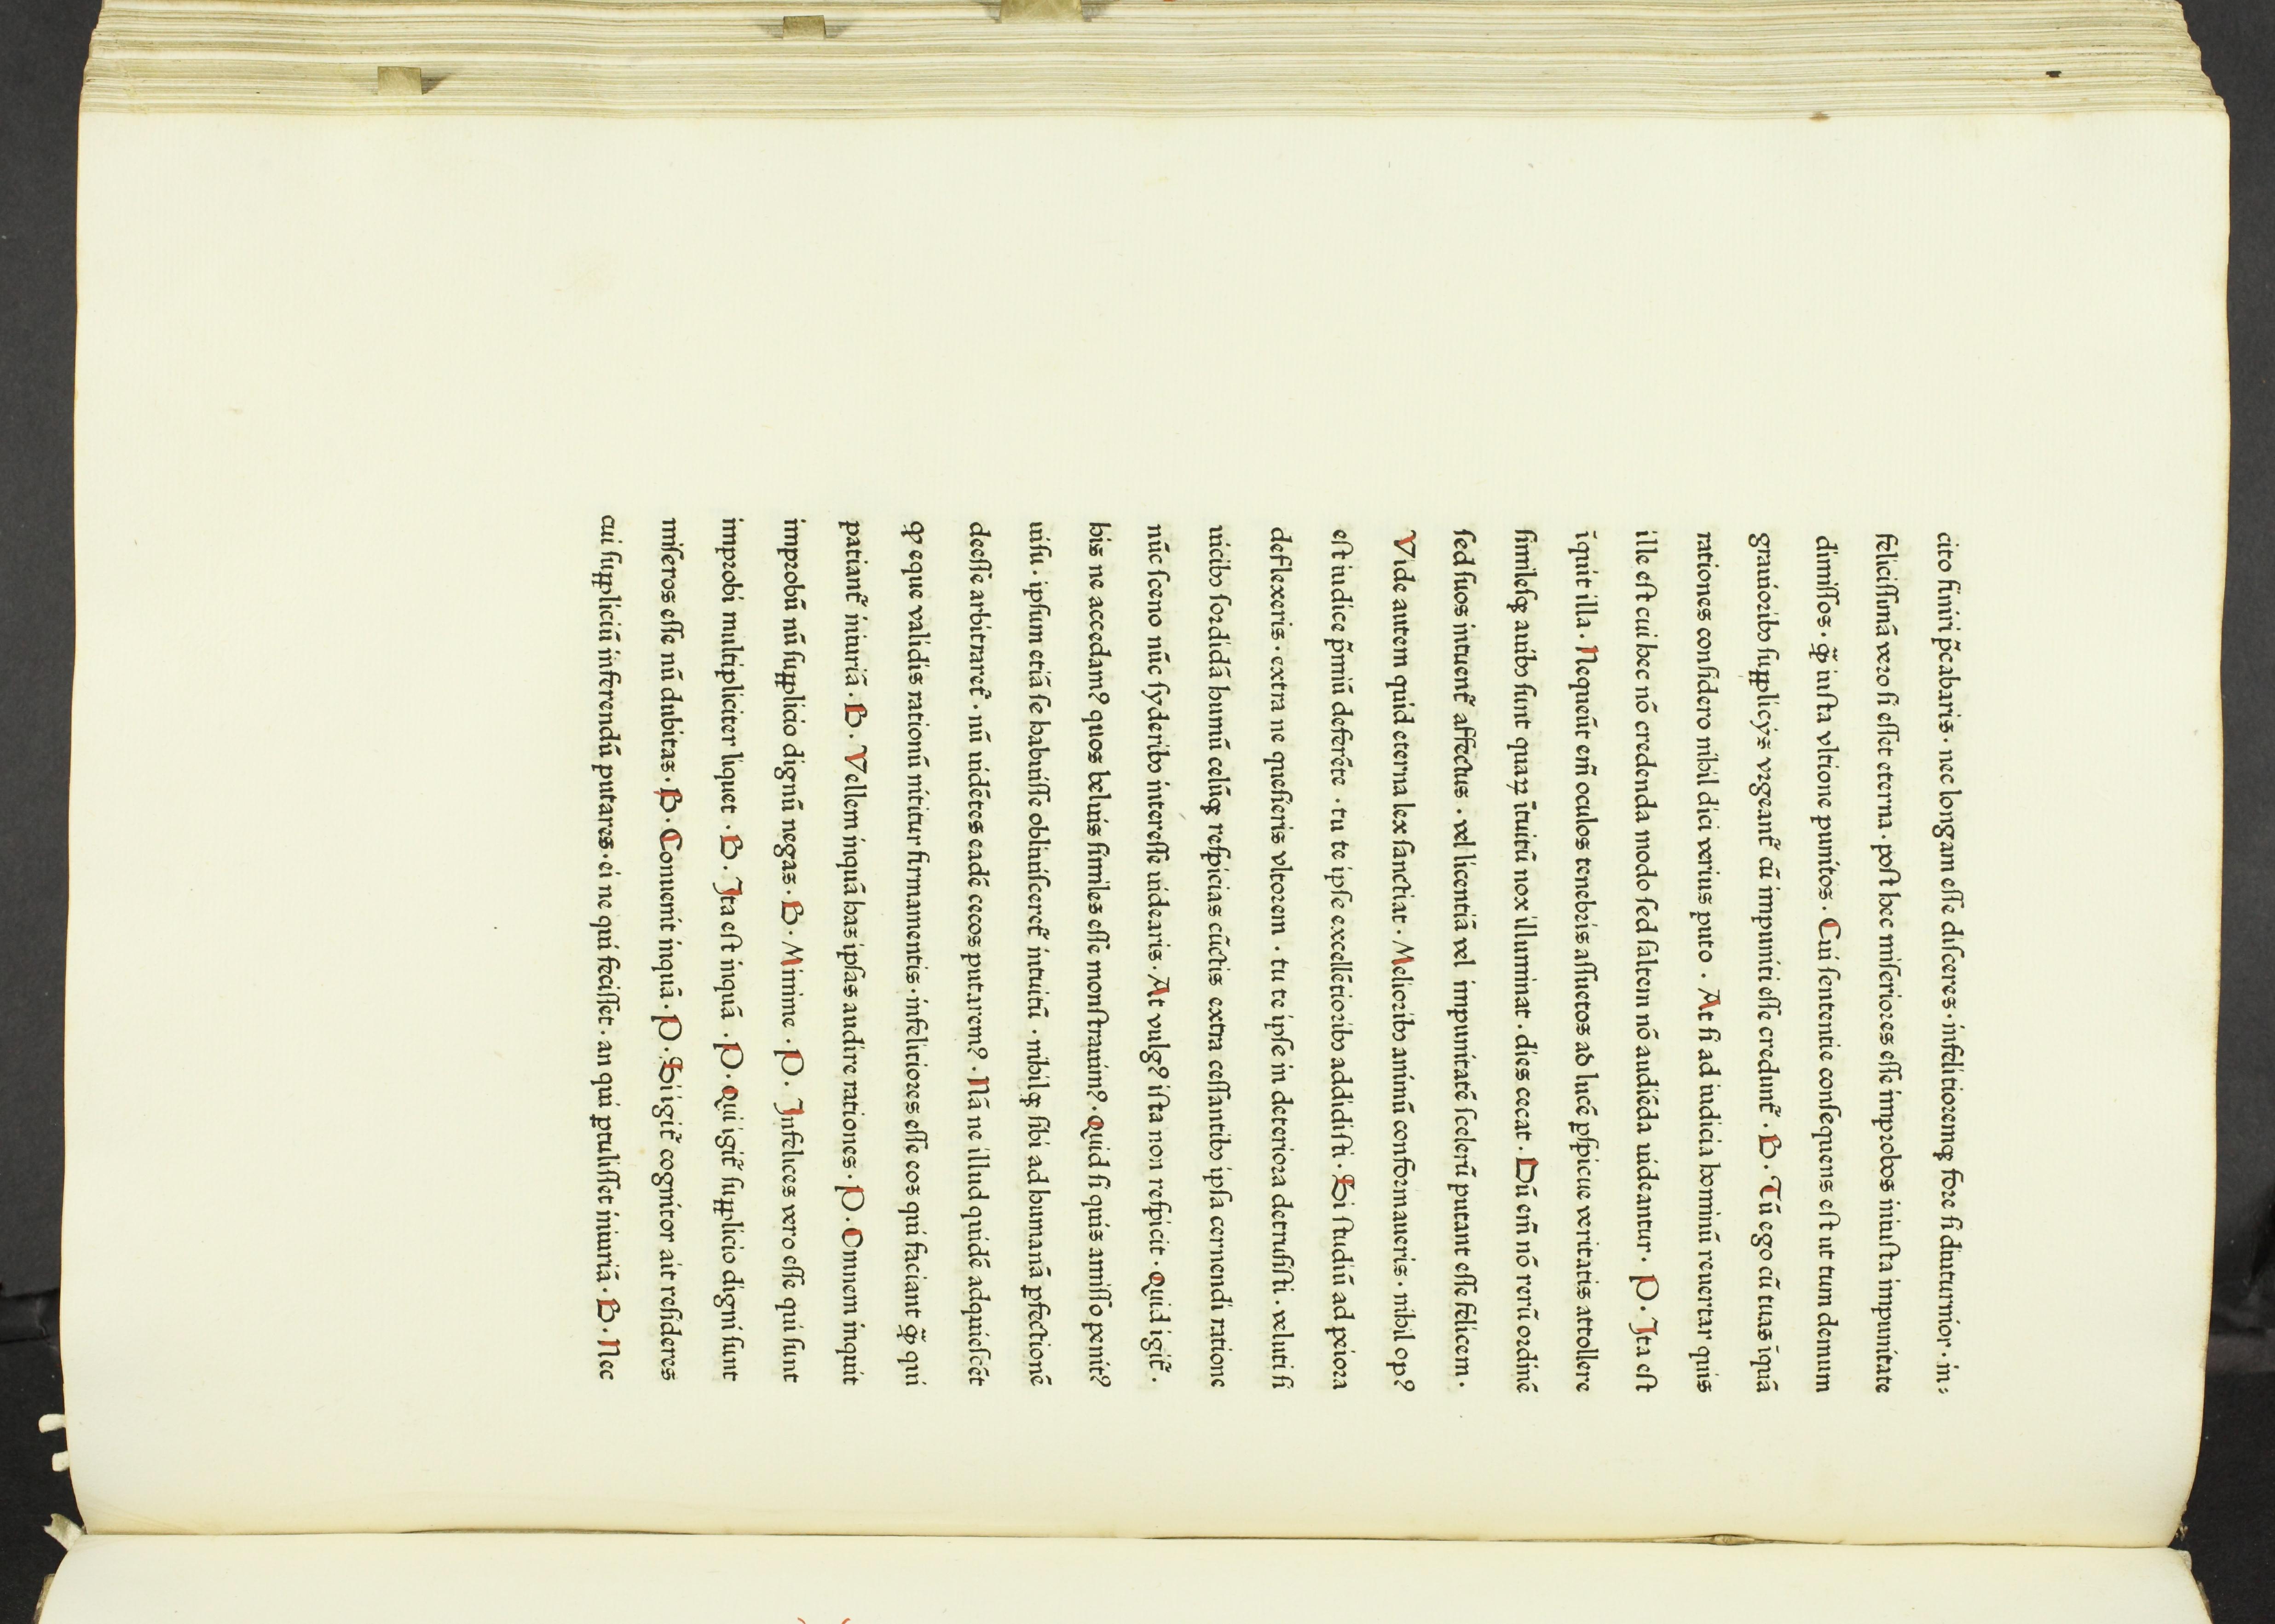 cito finiri p̄cabaris · nec longam eſſe diſceres · infelitioremqꝫ fore ſi diuturnior · in⸗
feliciſſimā vero ſi eſſet eterna · poſt hec miſeriores eſſe improbos iniuſta impunitate
dimiſſos · ꝙ̄ iuſta vltione punitos · Cui ſententie conſequens eſt ut tum demum
grauioribꝰ ſupplicÿs vrgeant᷑ cū impuniti eſſe credunt᷑ · B · Tū ego cū tuas īquā
rationes conſidero nihil dici verius puto · At ſi ad iudicia hominū reuertar quis
ille eſt cui hec nō credenda modo ſed ſaltem nō audiēda uideantur · P · Ita eſt
īquit illa · Nequeūt em̄ oculos tenebris aſſuetos ad lucē ꝑſpicue veritatis attollere
ſimileſqꝫ auibꝰ ſunt quaꝝ ītuitū nox illuminat · dies cecat · Dū em̄ nō rerū ordinē
ſed ſuos intuent᷑ affectus · vel licentiā vel impunitatē ſcelerū putant eſſe felicem ·
Vide autem quid eterna lex ſanctiat · Melioribꝰ animū conformaueris · nihil opꝰ
eſt iudice p̄miū deferēte · tu te ipſe excellētioribꝰ addidiſti · Si ſtudiū ad peiora
deflexeris · extra ne queſieris vltorem · tu te ipſe in deteriora detruſiſti · veluti ſi
uicibꝰ ſordidā humū celūqꝫ reſpicias cūctis extra ceſſantibꝰ ipſa cernendi ratione
nūc ſceno nūc ſyderibꝰ intereſſe uidearis · At vulgꝰ iſta non reſpicit · Quid igit᷑ ·
his ne accedam? quos beluis ſimiles eſſe monſtrauim? · Quid ſi quis amiſſo penit?
uiſu · ipſum etiā ſe habuiſſe obliuiſceret᷑ intuitū · nihilqꝫ ſibi ad humanā ꝑfectionē
deeſſe arbitraret᷑ · nū uidētes eadē cecos putarem? · Nā ne illud quidē adquieſcēt
ꝙ eque validis rationū nititur firmamentis · infelitiores eſſe eos qui faciant ꝙ̄ qui
patiant᷑ iniuriā · B · Vellem inquā has ipſas audire rationes · P · Omnem inquit
improbū nū ſupplicio dignū negas · B · Minime · P · Infelices vero eſſe qui ſunt
improbi multipliciter liquet · B · Ita eſt inquā · P · Qui igit᷑ ſupplicio digni ſunt
miſeros eſſe nū dubitas · B · Conuenit inquā · P · Si igit᷑ cognitor ait reſideres
cui ſuppliciū inferendū putares · ei ne qui feciſſet · an qui ꝑtuliſſet iniuriā · B · Nec